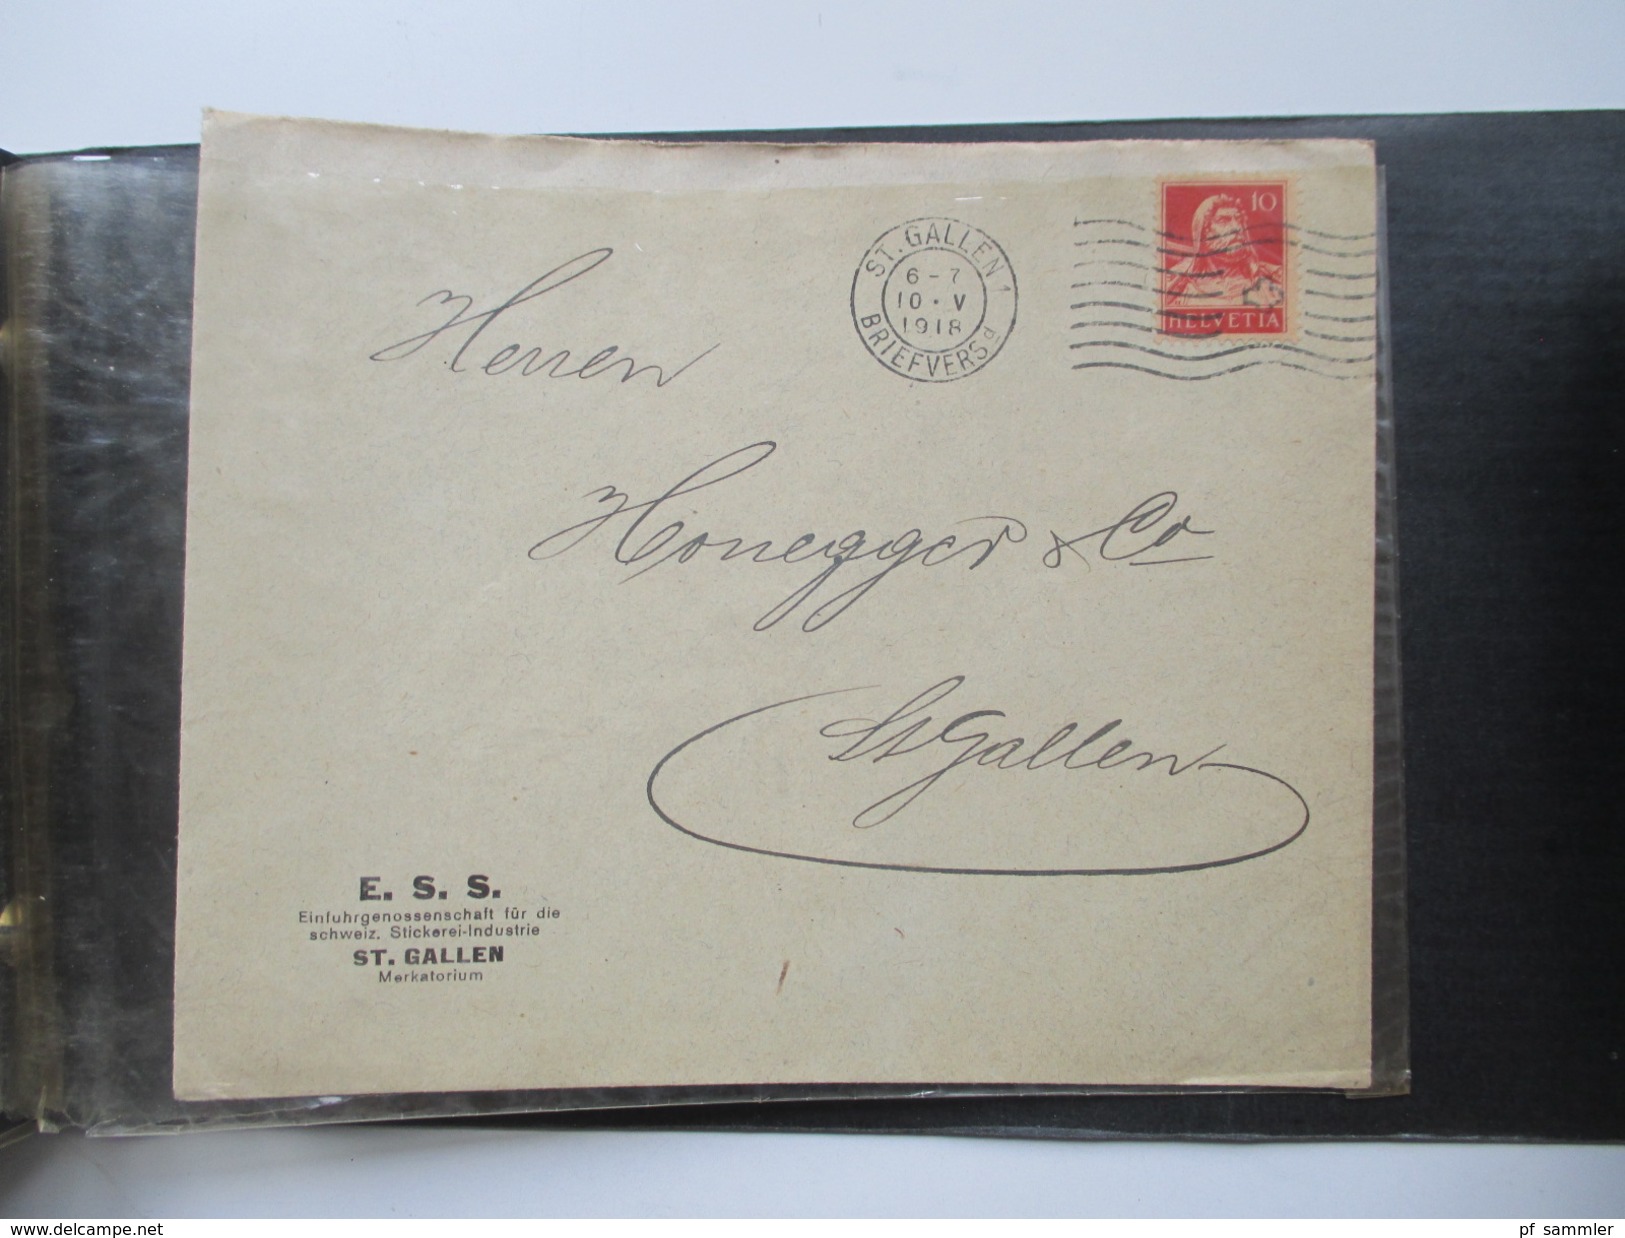 ST. GALLEN 1
6-7
10·V
1918
BRIEFVERS. d
10
HELVETIA
Herren
Honegger & Co
St Gallen
E. S. S.
Einfuhrgenossenschaft für die
schweiz. Stickerei-Industrie
ST. GALLEN
Merkatorium
www.delcampe.net
pf sammler